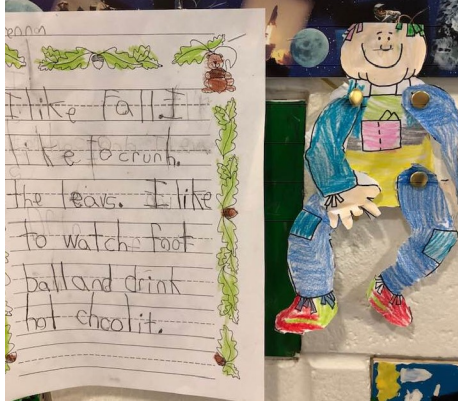 ennon
I like Fall. I
like to crunh.
the leavs. I like
to watch foot
ball and drink
hot chcolit.